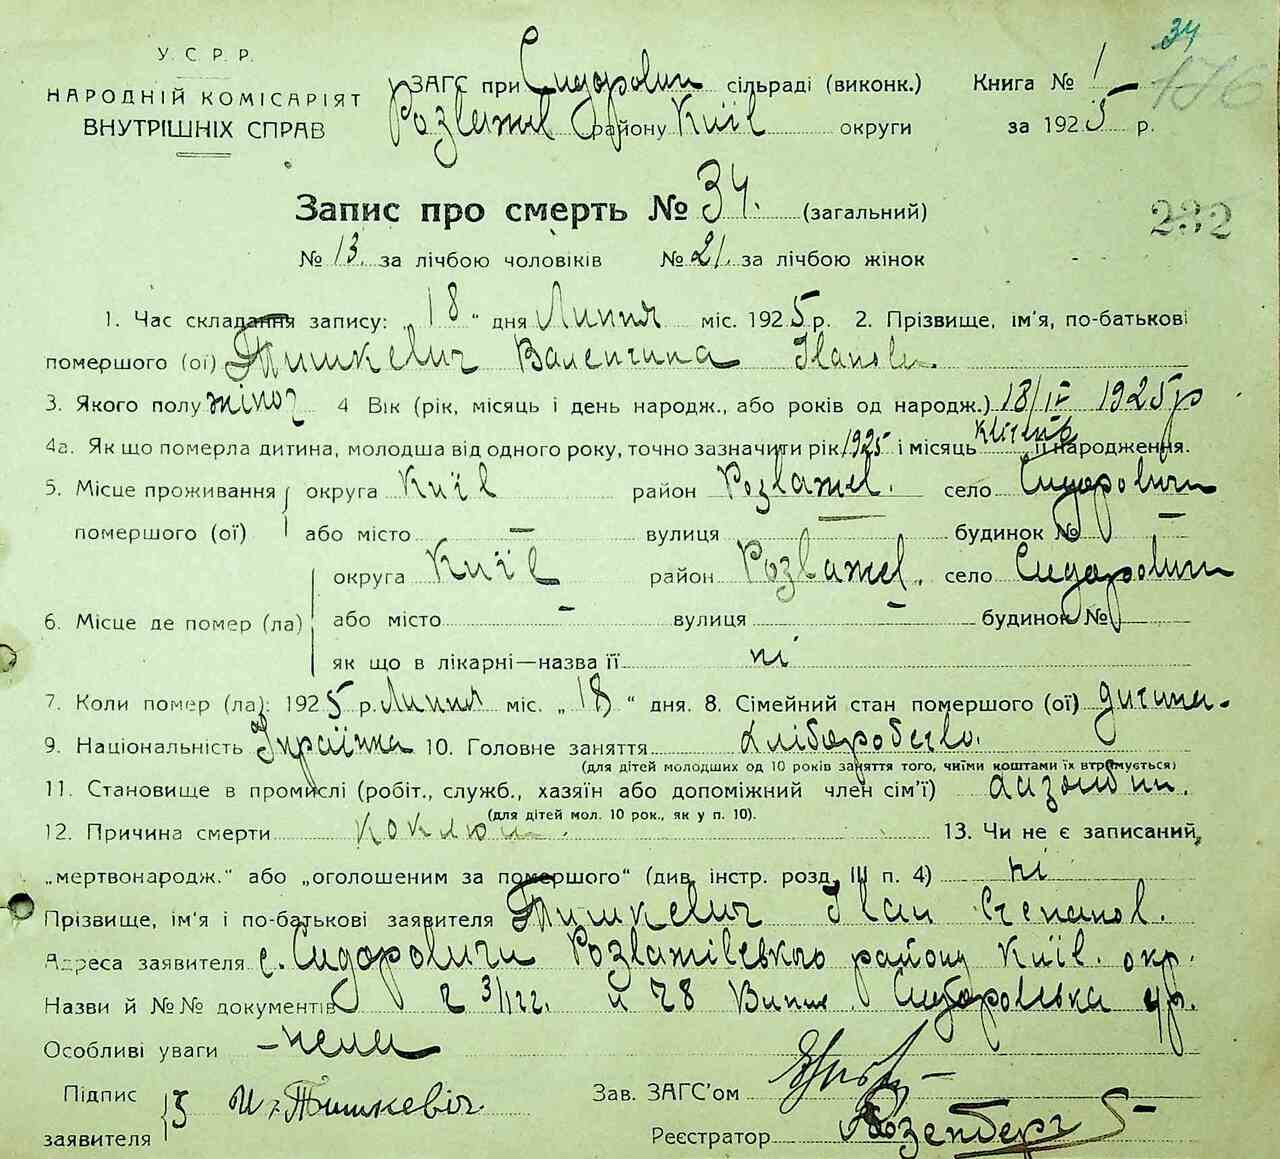 34
176
У. С. Р. Р.
НАРОДНІЙ КОМІСАРІЯТ
ВНУТРІШНІХ СПРАВ
ЗАГС при Сидорович сільраді (виконк.)
Розважев району Київ округи
Книга № 1
за 1925 р.
Запис про смерть № 34. (загальний)
232
№ 13. за лічбою чоловіків № 21. за лічбою жінок
1. Час складання запису: „18“ дня Липня міс. 1925 р. 2. Прізвище, ім'я, по-батькові
помершого (ої) Тишкевич Валентина Іванов.
3. Якого полу жіноч 4 Вік (рік, місяць і день народж., або років од народж.) 18/IV 1925 р
4а. Як що померла дитина, молодша від одного року, точно зазначити рік 1925 і місяць квітень її народження.
5. Місце проживання помершого (ої) округа Київ район Розважев. село Сидоровичи
або місто — вулиця — будинок № —
6. Місце де помер (ла) округа Київ район Розважев. село Сидоровичи
або місто - вулиця - будинок №
як що в лікарні—назва її ні
7. Коли помер (ла): 1925 р. Липня міс. „18“ дня. 8. Сімейний стан помершого (ої) дитина.
9. Національність Українка 10. Головне заняття Хліборобство.
(для дітей молодших од 10 років заняття того, чиїми коштами їх втримується)
11. Становище в промислі (робіт., служб., хазяїн або допоміжний член сім'ї)
(для дітей мол. 10 рок., як у п. 10).
12. Причина смерти коклюш. 13. Чи не є записаний,
„мертвонародж.“ або „оголошеним за помершого“ (див. інстр. розд. III п. 4) ні
Прізвище, ім'я і по-батькові заявителя Тишкевич Іван Степанов.
Адреса заявителя с. Сидоровичи Розважівського району Київ. окр.
Назви й №№ документів 78
Особливі уваги – нема
Підпис заявителя И. Тишкевіч
Зав. ЗАГС'ом
Реєстратор Розенберг